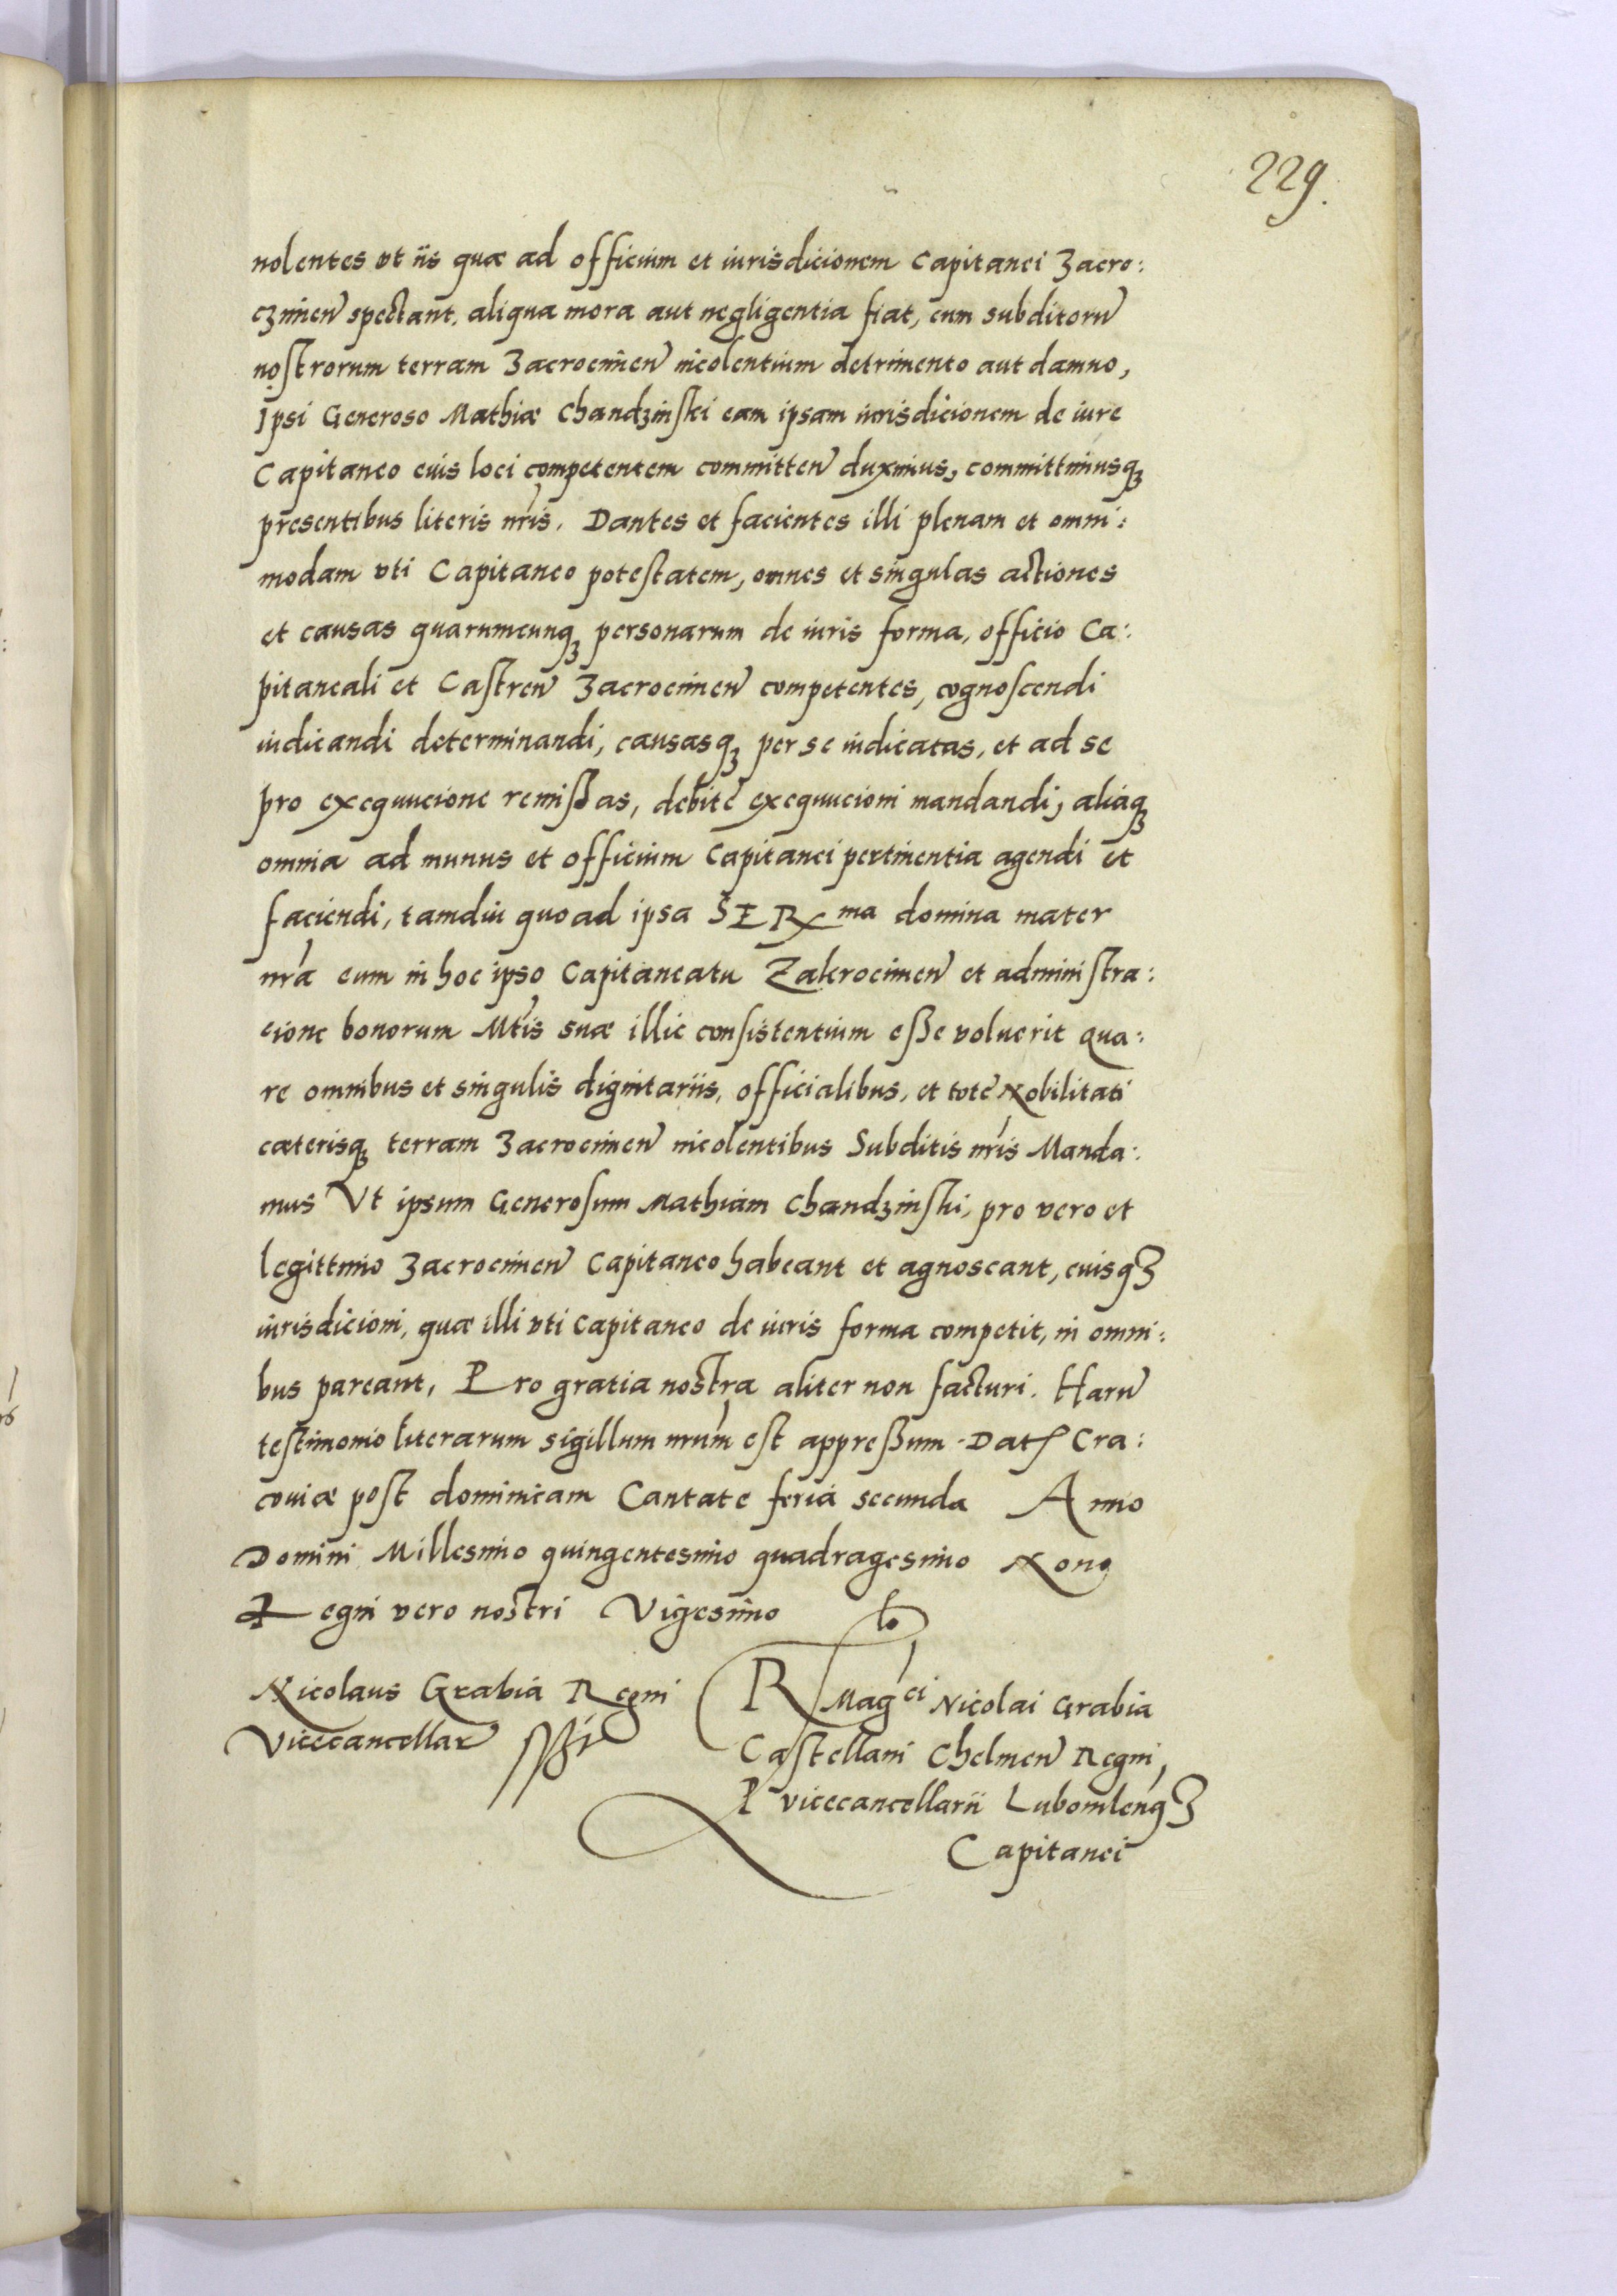 229.
nolentes vt iis quæ ad officium et iurisdicionem Capitanei Zacro:
czimen̄ spectant, aliqua mora aut negligentia fiat, cum subditorū
nostrorum terram Zacrocimen̄ incolentium detrimento aut damno,
Ipsi Generoso Mathiæ Chandzinski eam ipsam iurisdicionem de iure
Capitaneo euis loci competentem committen̄ duximus, committimusqꝫ
presentibus literis nr̄is. Dantes et facientes illi plenam et omni:
modam vti Capitaneo potestatem, omnes et singulas actiones
et causas quarumcunqꝫ personarum de iuris forma, officio Ca:
pitaneali et Castren̄ Zacrocimen̄ competentes, cognoscendi
iudicandi determinandi, causasqꝫ per se iudicatas, et ad se
pro exequucione remißas, debitę exequucioni mandandi, aliaqꝫ
omnia ad munus et officium Capitanei pertinentia agendi et
faciendi, tamdiu quoad ipsa SERma domina mater
nr̄a eum in hoc ipso Capitaneatu Zakrocimen̄ et administra:
cione bonorum Mt̄is suæ illic consistentium eße voluerit Qua:
re omnibus et singulis dignitariis, officialibus, et totę Nobilitati
cæterisqꝫ terram Zacrocimen̄ incolentibus Subditis nr̄is Manda:
mus Vt ipsum Generosum Mathiam Chandzinski, pro vero et
legittimo Zacrocimen̄ Capitaneo habeant et agnoscant, euisqꝫ
iurisdicioni, quæ illi vti Capitaneo de iuris forma competit, in omni:
bus pareant, Pro gratia nostra aliter non facturi. Harū
testimonio literarum sigillum nr̄um est appreßum. Dat̄ Cra:
couiæ post dominicam Cantate feria secunda Anno
Domini Millesimo quingentesimo quadragesimo Nono
Regni vero nostri Vigesimo
Nicolaus Grabia Regni
Vicecancellar̄ sßt
Rlo Magci Nicolai Grabia
Castellani Chelmen̄ Regni
P vicecancellarii Lubomlen̄qꝫ
Capitanei